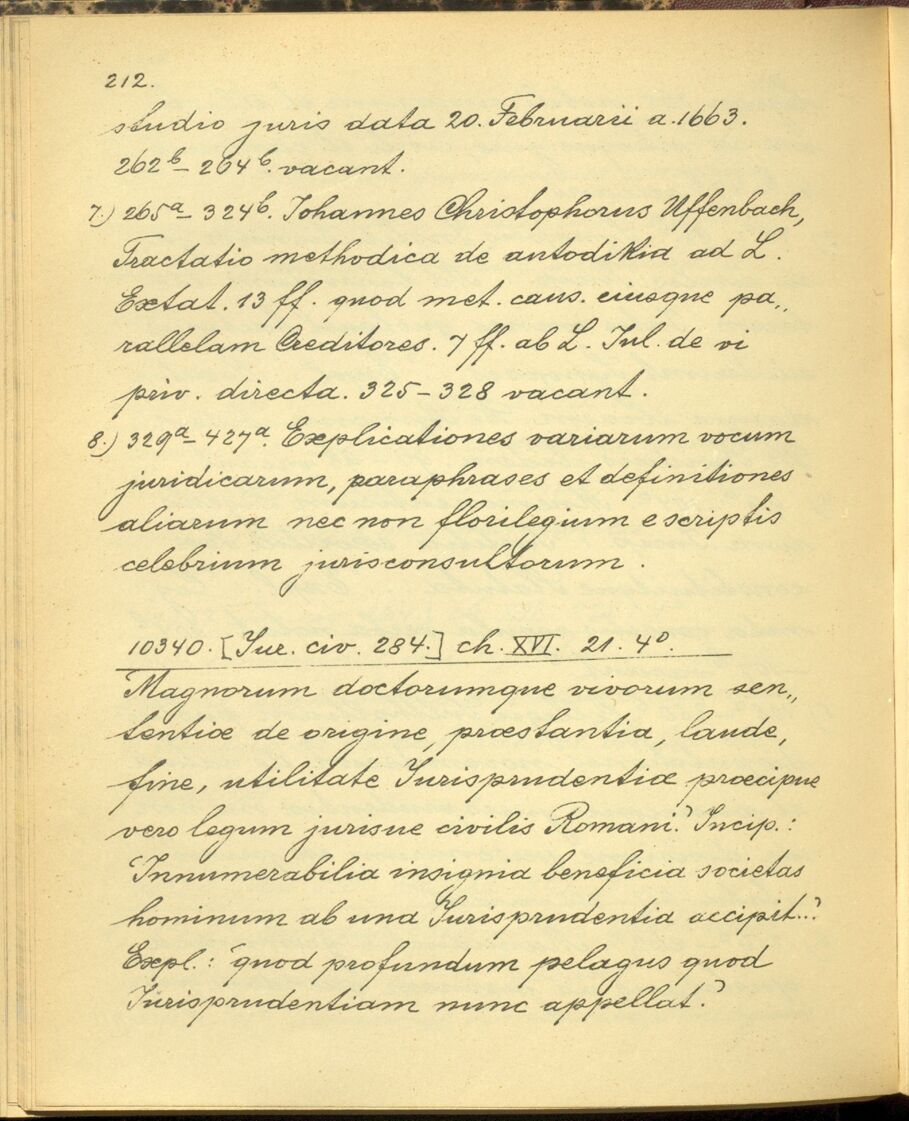 212.
studio juris data 20. Februarii a. 1663.
262b – 264b. vacant.
7.) 265a – 324b. Johannes Christophorus Uffenbach,
Tractatio methodica de autodikia ad L.
Extat. 13 ff. quod met. caus. eiusque pa„
rallelam Creditores. 7 ff. ab L. Jul. de vi
priv. directa. 325 – 328 vacant.
8.) 329a – 427a. Explicationes variarum vocum
juridicarum, paraphrases et definitiones
aliarum nec non florilegium e scriptis
celebrium jurisconsultorum.
10340. [Jur. civ. 284.] ch. XVI. 21. 4o.
Magnorum doctorumque vivorum sen„
tentiæ de origine, præstantia, laude,
fine, utilitate Jurisprudentiæ præcipue
vero legum jurisue civilis Romani.' Incip.:
'Innumerabilia insignia beneficia societas
hominum ab una Jurisprudentia accipit...'
Expl.: 'quod profundum pelagus quod
Jurisprudentiam nunc appellat.'